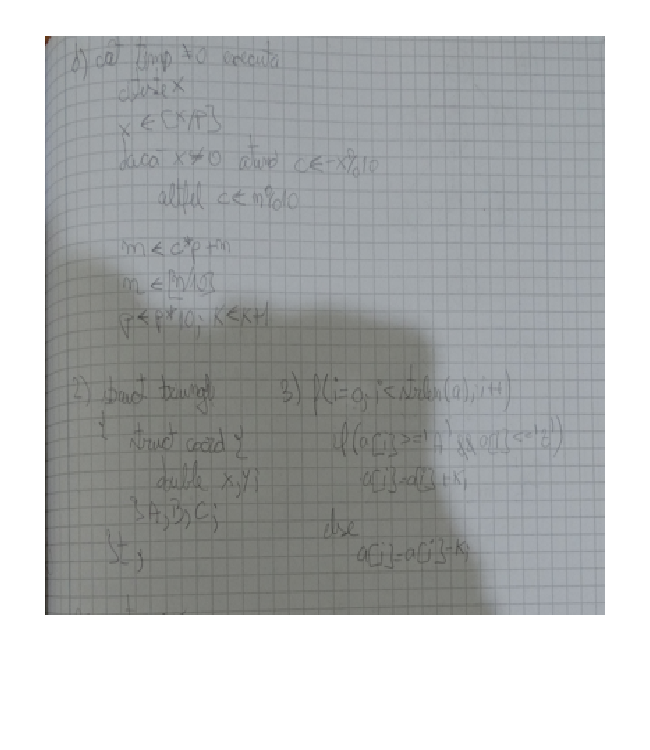 b) cat timp ≠0 executa
citeste x
x ← [x/p]
daca x≠0 atunci c←x%10
altfel c←n%10
m ← c*p+m
n ← [n/10]
p←p*10; k←k+1
2) struct triunghi
{
struct coord {
double x,y;
}A,B,C;
}t;
3) f(i=0; i<strlen(a); i++)
if(a[i]>='A' && a[i]<='d')
a[i]=a[i]+k;
else
a[i]=a[i]-k;